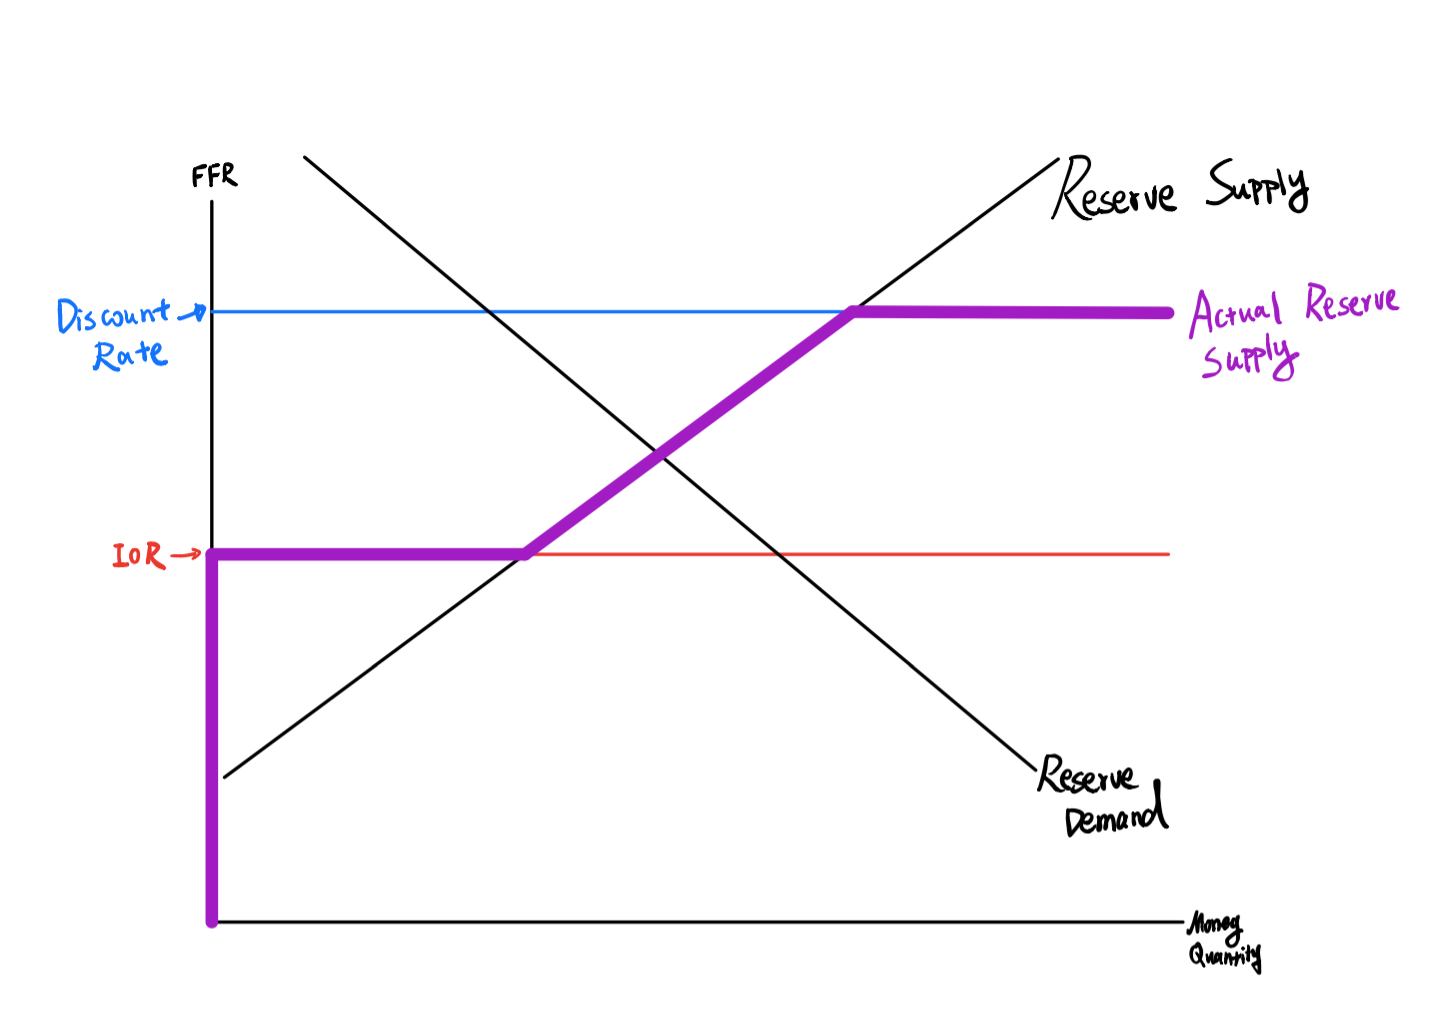 FFR
Reserve Supply
Discount
Rate
Actual Reserve
Supply
IOR
Reserve
Demand
Money
Quantity